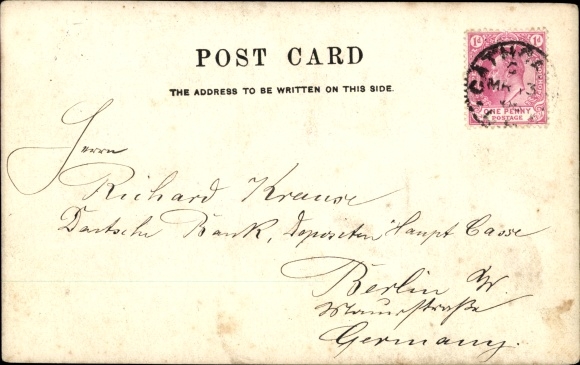 POST CARD
THE ADDRESS TO BE WRITTEN ON THIS SIDE.
1d 1d
ONE PENNY
POSTAGE
MR 13
Herrn
Richard Krause
Deutsche Bank, Depositen Haupt Casse
Berlin W.
Mauerstraße
Germany.